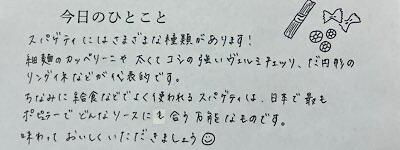 今日のひとこと
スパゲティにはさまざまな種類があります！
細麺のカッペリーニや太くてコシの強いヴェルミチェッリ、だ円形の
リングイネなどが代表的です。
ちなみに給食などでよく使われるスパゲティは、日本で最も
ポピュラーでどんなソースにも合う万能なものです。
味わっておいしくいただきましょう